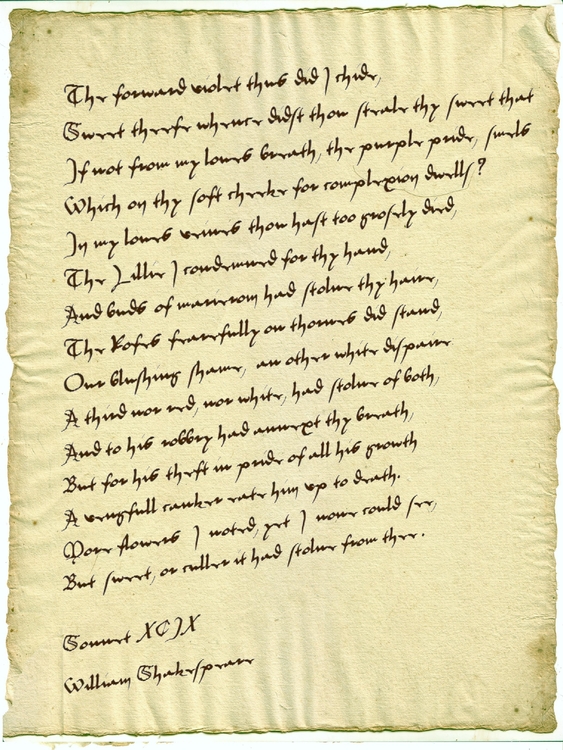 The forward violet thus did I chide,
Sweet theefe whence didst thou steale thy sweet that
If not from my loves breath, the purple pride, smels
Which on thy soft cheeke for complexion dwells?
In my loves veines thou hast too grosely died,
The Lillie I condemned for thy hand,
And buds of marierom had stolne thy haire,
The Roses fearefully on thornes did stand,
Our blushing shame, an other white dispaire
A third nor red, nor white, had stolne of both,
And to his robbry had annext thy breath,
But for his theft in pride of all his growth
A vengfull canker eate him up to death.
More flowers I noted, yet I none could see,
But sweet, or culler it had stolne from thee.
Sonnet XCIX
William Shakespeare